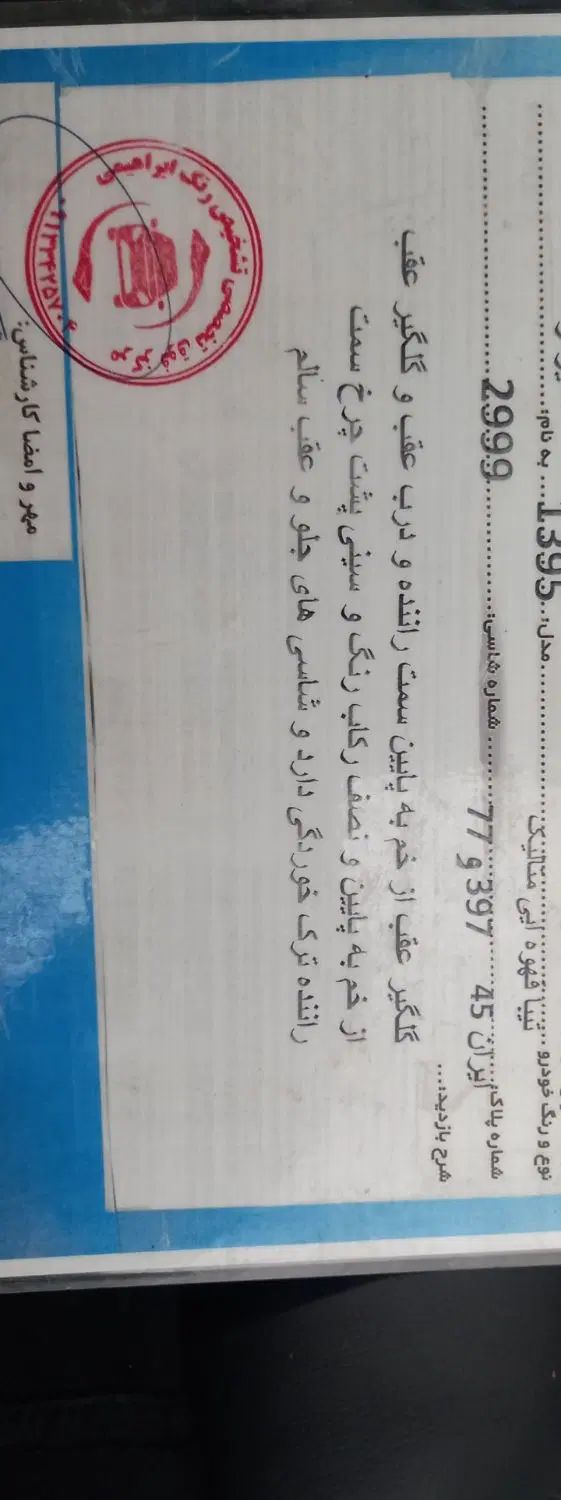 نوع و رنگ خودرو ... تیبا قهوه ایی متالیک ... مدل: ... 1395 ... به نام: ...
شماره پلاک: ایران 45 397 و 77 ... شماره شاسی: ... 2999 ...
شرح بازدید: ...
گلگیر عقب از خم به پایین سمت راننده و درب عقب و گلگیر عقب
از خم به پایین و نصف رکاب رنگ و سینی پشت چرخ سمت
راننده ترک خوردگی دارد و شاسی های جلو و عقب سالم
مرکز فوق تخصصی تشخیص رنگ ابراهیمی
مهر و امضا کارشناس: